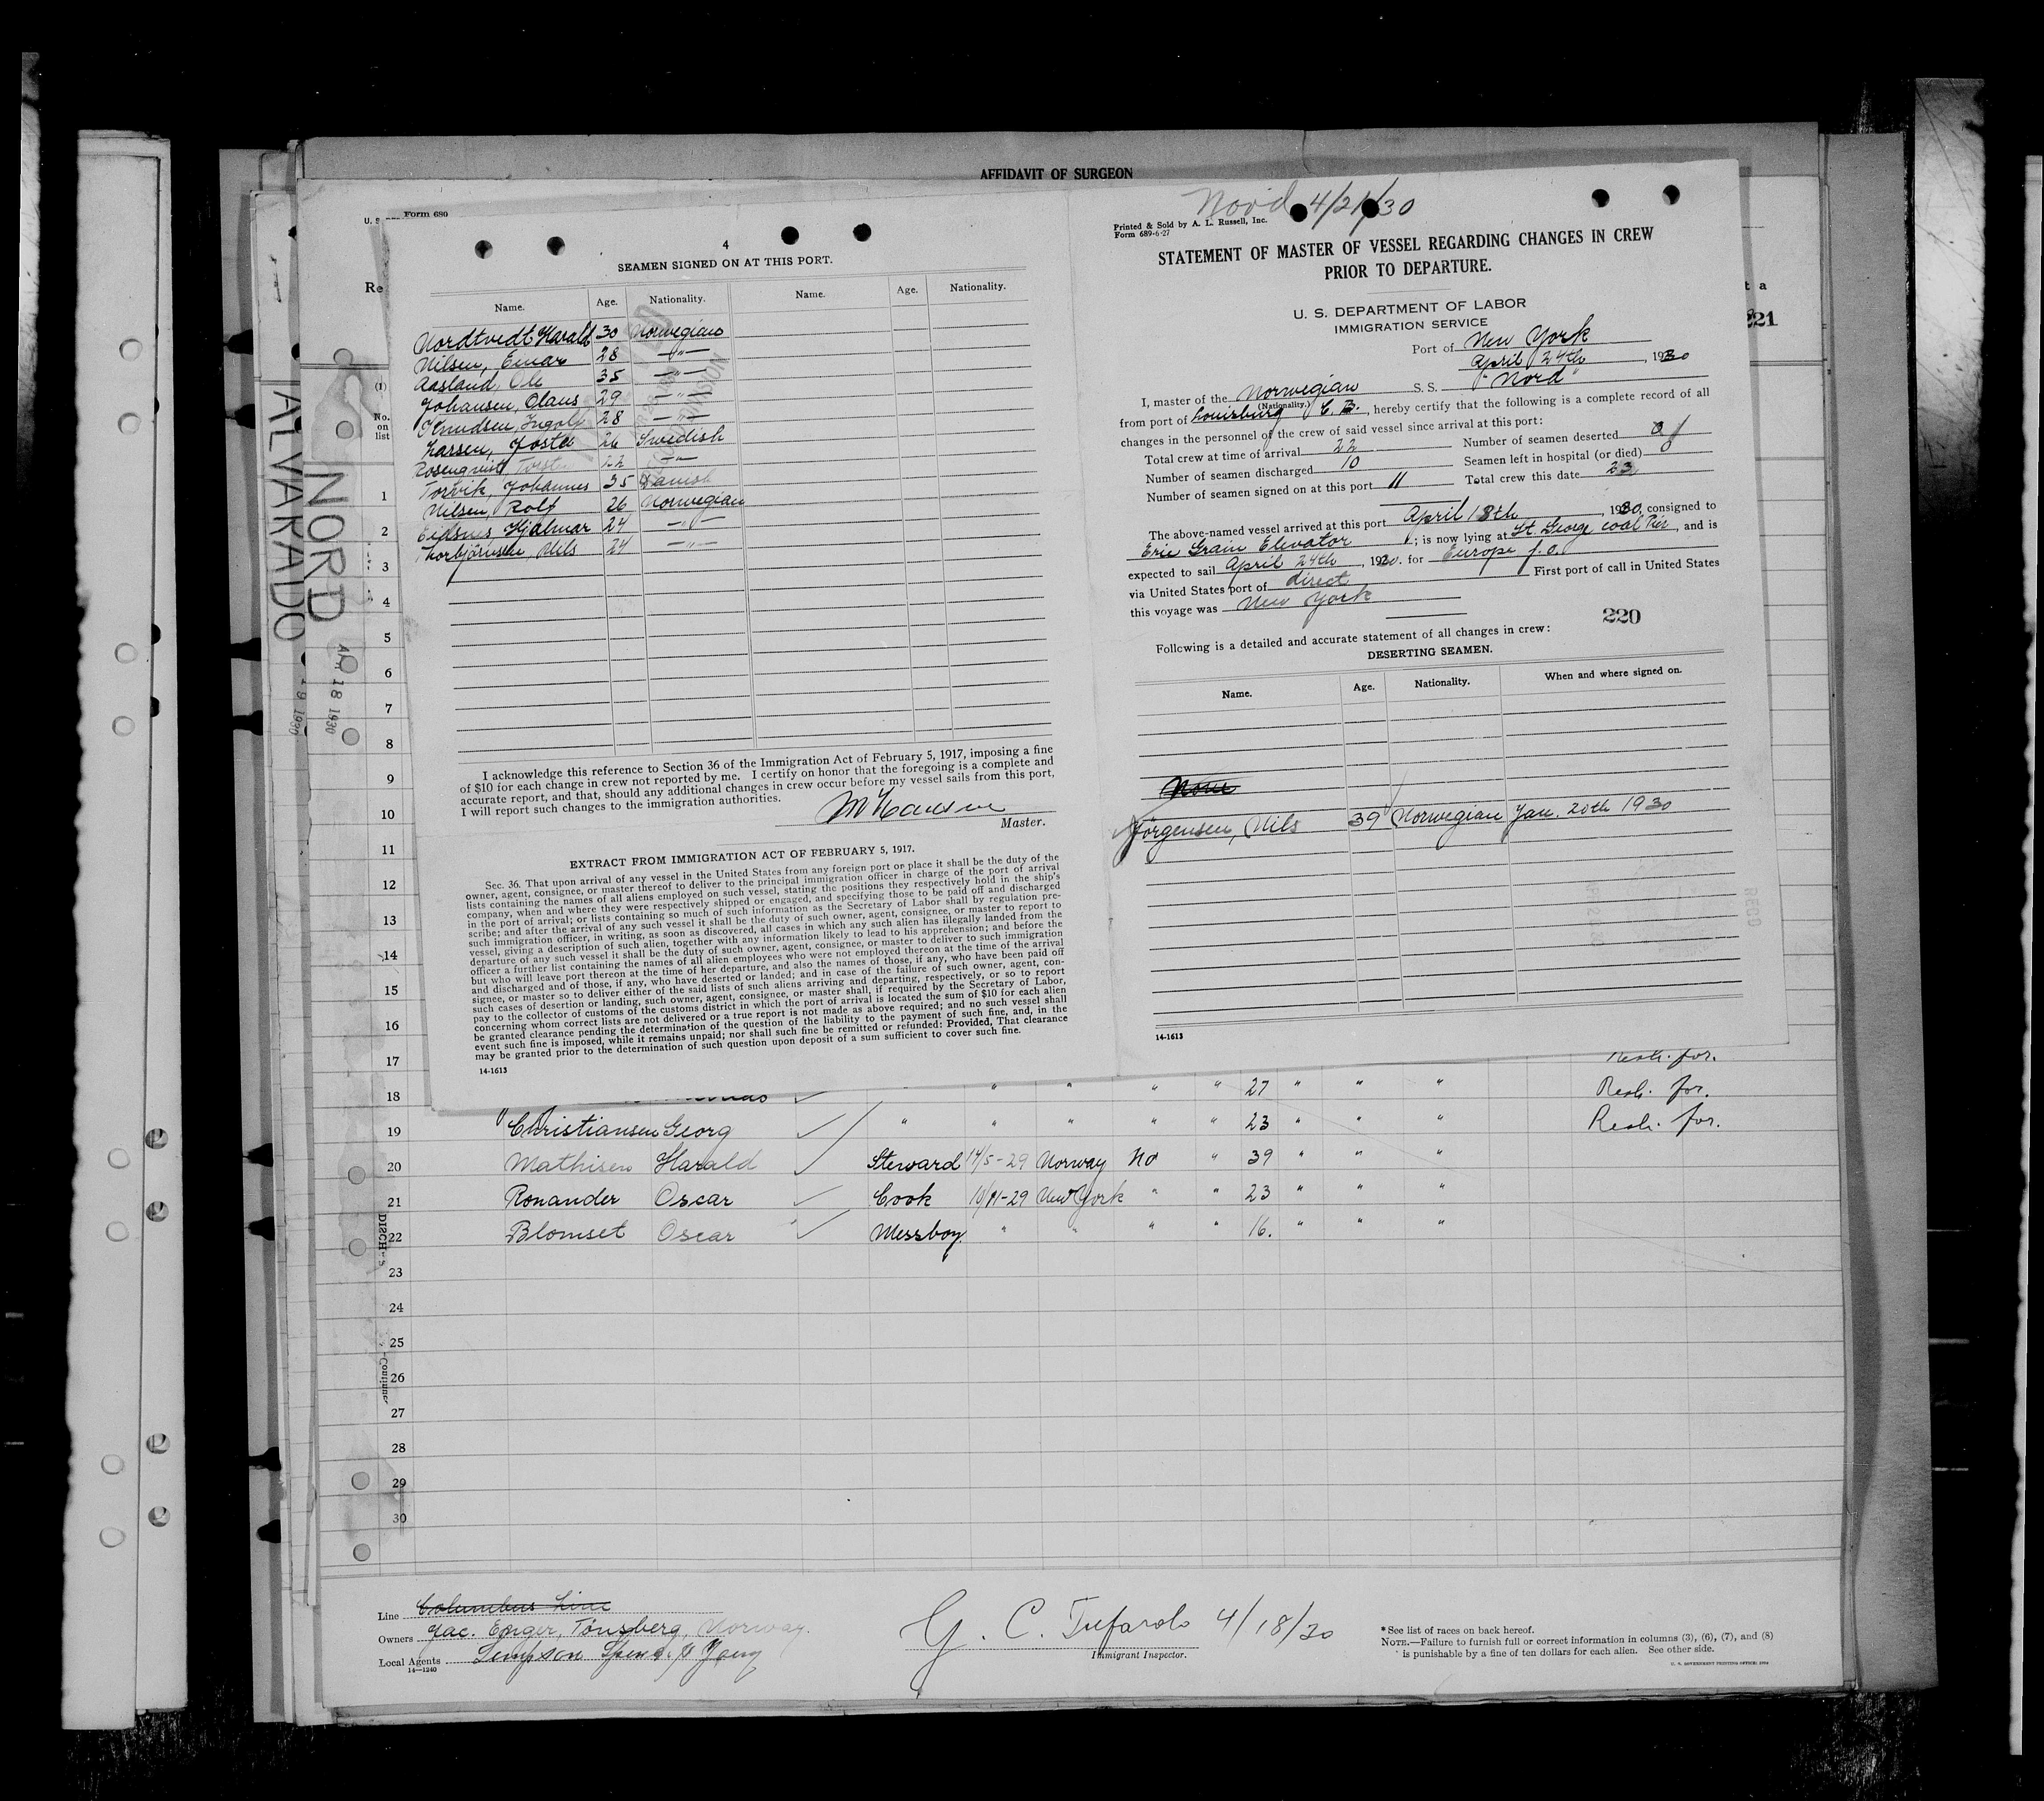 AFFIDAVIT OF SURGEON
Form 680
4
SEAMEN SIGNED ON AT THIS PORT.
Name. Age. Nationality. Name. Age. Nationality.
Nordtvedt Harald 30 Norwegian
Nilsen, Einar 28 —"—
Aasland, Ole 35 —"—
Johansen, Olaus 29 —"—
Knudsen, Ingolf 28 —"—
Larsen, Josta 26 Swedish
Rosenqvist 22 —"—
Torvik, Johannes 35 Danish
Nilsen, Rolf 26 Norwegian
Eidsnes, Hjalmar 24 —"—
Thorbjörnsen, Nils 24 —"—
I acknowledge this reference to Section 36 of the Immigration Act of February 5, 1917, imposing a fine
of $10 for each change in crew not reported by me. I certify on honor that the foregoing is a complete and
accurate report, and that, should any additional changes in crew occur before my vessel sails from this port,
I will report such changes to the immigration authorities.
Master.
EXTRACT FROM IMMIGRATION ACT OF FEBRUARY 5, 1917.
Sec. 36. That upon arrival of any vessel in the United States from any foreign port or place it shall be the duty of the
owner, agent, consignee, or master thereof to deliver to the principal immigration officer in charge of the port of arrival
lists containing the names of all aliens employed on such vessel, stating the positions they respectively hold in the ship's
company, when and where they were respectively shipped or engaged, and specifying those to be paid off and discharged
in the port of arrival; or lists containing so much of such information as the Secretary of Labor shall by regulation pre-
scribe; and after the arrival of any such vessel it shall be the duty of such owner, agent, consignee, or master to report to
such immigration officer, in writing, as soon as discovered, all cases in which any such alien has illegally landed from the
vessel, giving a description of such alien, together with any information likely to lead to his apprehension; and before the
departure of any such vessel it shall be the duty of such owner, agent, consignee, or master to deliver to such immigration
officer a further list containing the names of all alien employees who were not employed thereon at the time of the arrival
but who will leave port thereon at the time of her departure, and also the names of those, if any, who have been paid off
and discharged and of those, if any, who have deserted or landed; and in case of the failure of such owner, agent, con-
signee, or master so to deliver either of the said lists of such aliens arriving and departing, respectively, or so to report
such cases of desertion or landing, such owner, agent, consignee, or master shall, if required by the Secretary of Labor,
pay to the collector of customs of the customs district in which the port of arrival is located the sum of $10 for each alien
concerning whom correct lists are not delivered or a true report is not made as above required; and no such vessel shall
be granted clearance pending the determination of the question of the liability to the payment of such fine, and, in the
event such fine is imposed, while it remains unpaid; nor shall such fine be remitted or refunded: Provided, That clearance
may be granted prior to the determination of such question upon deposit of a sum sufficient to cover such fine.
14-1613
Nord 4/21/30
Printed & Sold by A. L. Russell, Inc.
Form 689-6-27
STATEMENT OF MASTER OF VESSEL REGARDING CHANGES IN CREW
PRIOR TO DEPARTURE.
U. S. DEPARTMENT OF LABOR
IMMIGRATION SERVICE
Port of New York
April 24th, 1930
I, master of the Norwegian S. S. "Nord"
(Nationality.)
from port of Louisburg C. B., hereby certify that the following is a complete record of all
changes in the personnel of the crew of said vessel since arrival at this port:
Total crew at time of arrival 22 Number of seamen deserted
Number of seamen discharged 10 Seamen left in hospital (or died)
Number of seamen signed on at this port 11 Total crew this date 23
The above-named vessel arrived at this port April 18th, 1930, consigned to
Erie Grain Elevator; is now lying at St. George coal Pier, and is
expected to sail April 24th, 1930. for Europe f.o.
via United States port of direct First port of call in United States
this voyage was New York
220
Following is a detailed and accurate statement of all changes in crew:
DESERTING SEAMEN.
Name. Age. Nationality. When and where signed on.
None
Jörgensen, Nils 39 Norwegian Jan. 20th 1930
14-1613
221
ALVARADO
NORD
APR 18 1930
19 1930
(1)
No.
on
list
1
2
3
4
5
6
7
8
9
10
11
12
13
14
15
16
17 Resh. for.
18 " " " " 27 " " " Resh. for.
19 Christiansen Georg " " " " " 23 " " " Resh. for.
20 Mathisen Harald Steward 14/5-29 Norway No " 39 " " "
21 Ronander Oscar Cook 10/1-29 New York " " 23 " " "
22 Blomset Oscar Messboy " " " " 16. " " "
23
24
25
26
27
28
29
30
Line Columbus Line
Owners Jac. Enger, Tönsberg, Norway.
Local Agents
14—1240
G. C. Tufarolo 4/18/30
Immigrant Inspector.
*See list of races on back hereof.
NOTE.—Failure to furnish full or correct information in columns (3), (6), (7), and (8)
is punishable by a fine of ten dollars for each alien. See other side.